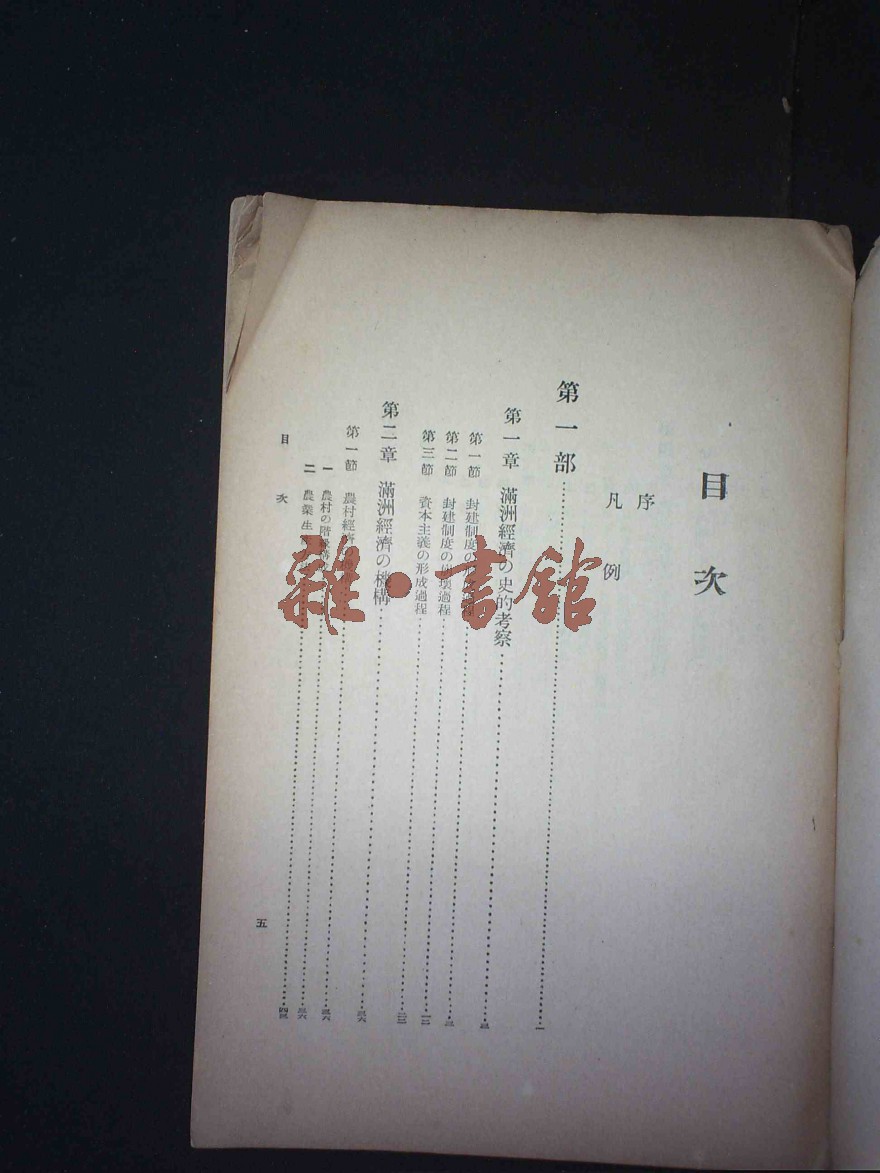 目次
序
凡例
第一部 一
第一章 滿洲經濟の史的考察 三
第一節 封建制度の 三
第二節 封建制度の崩壞過程 一二
第三節 資本主義の形成過程 二二
第二章 滿洲經濟の機構 三六
第一節 農村經濟 三六
一 農村の階級構 三六
二 農業生 四三
目次
五
雜·書館